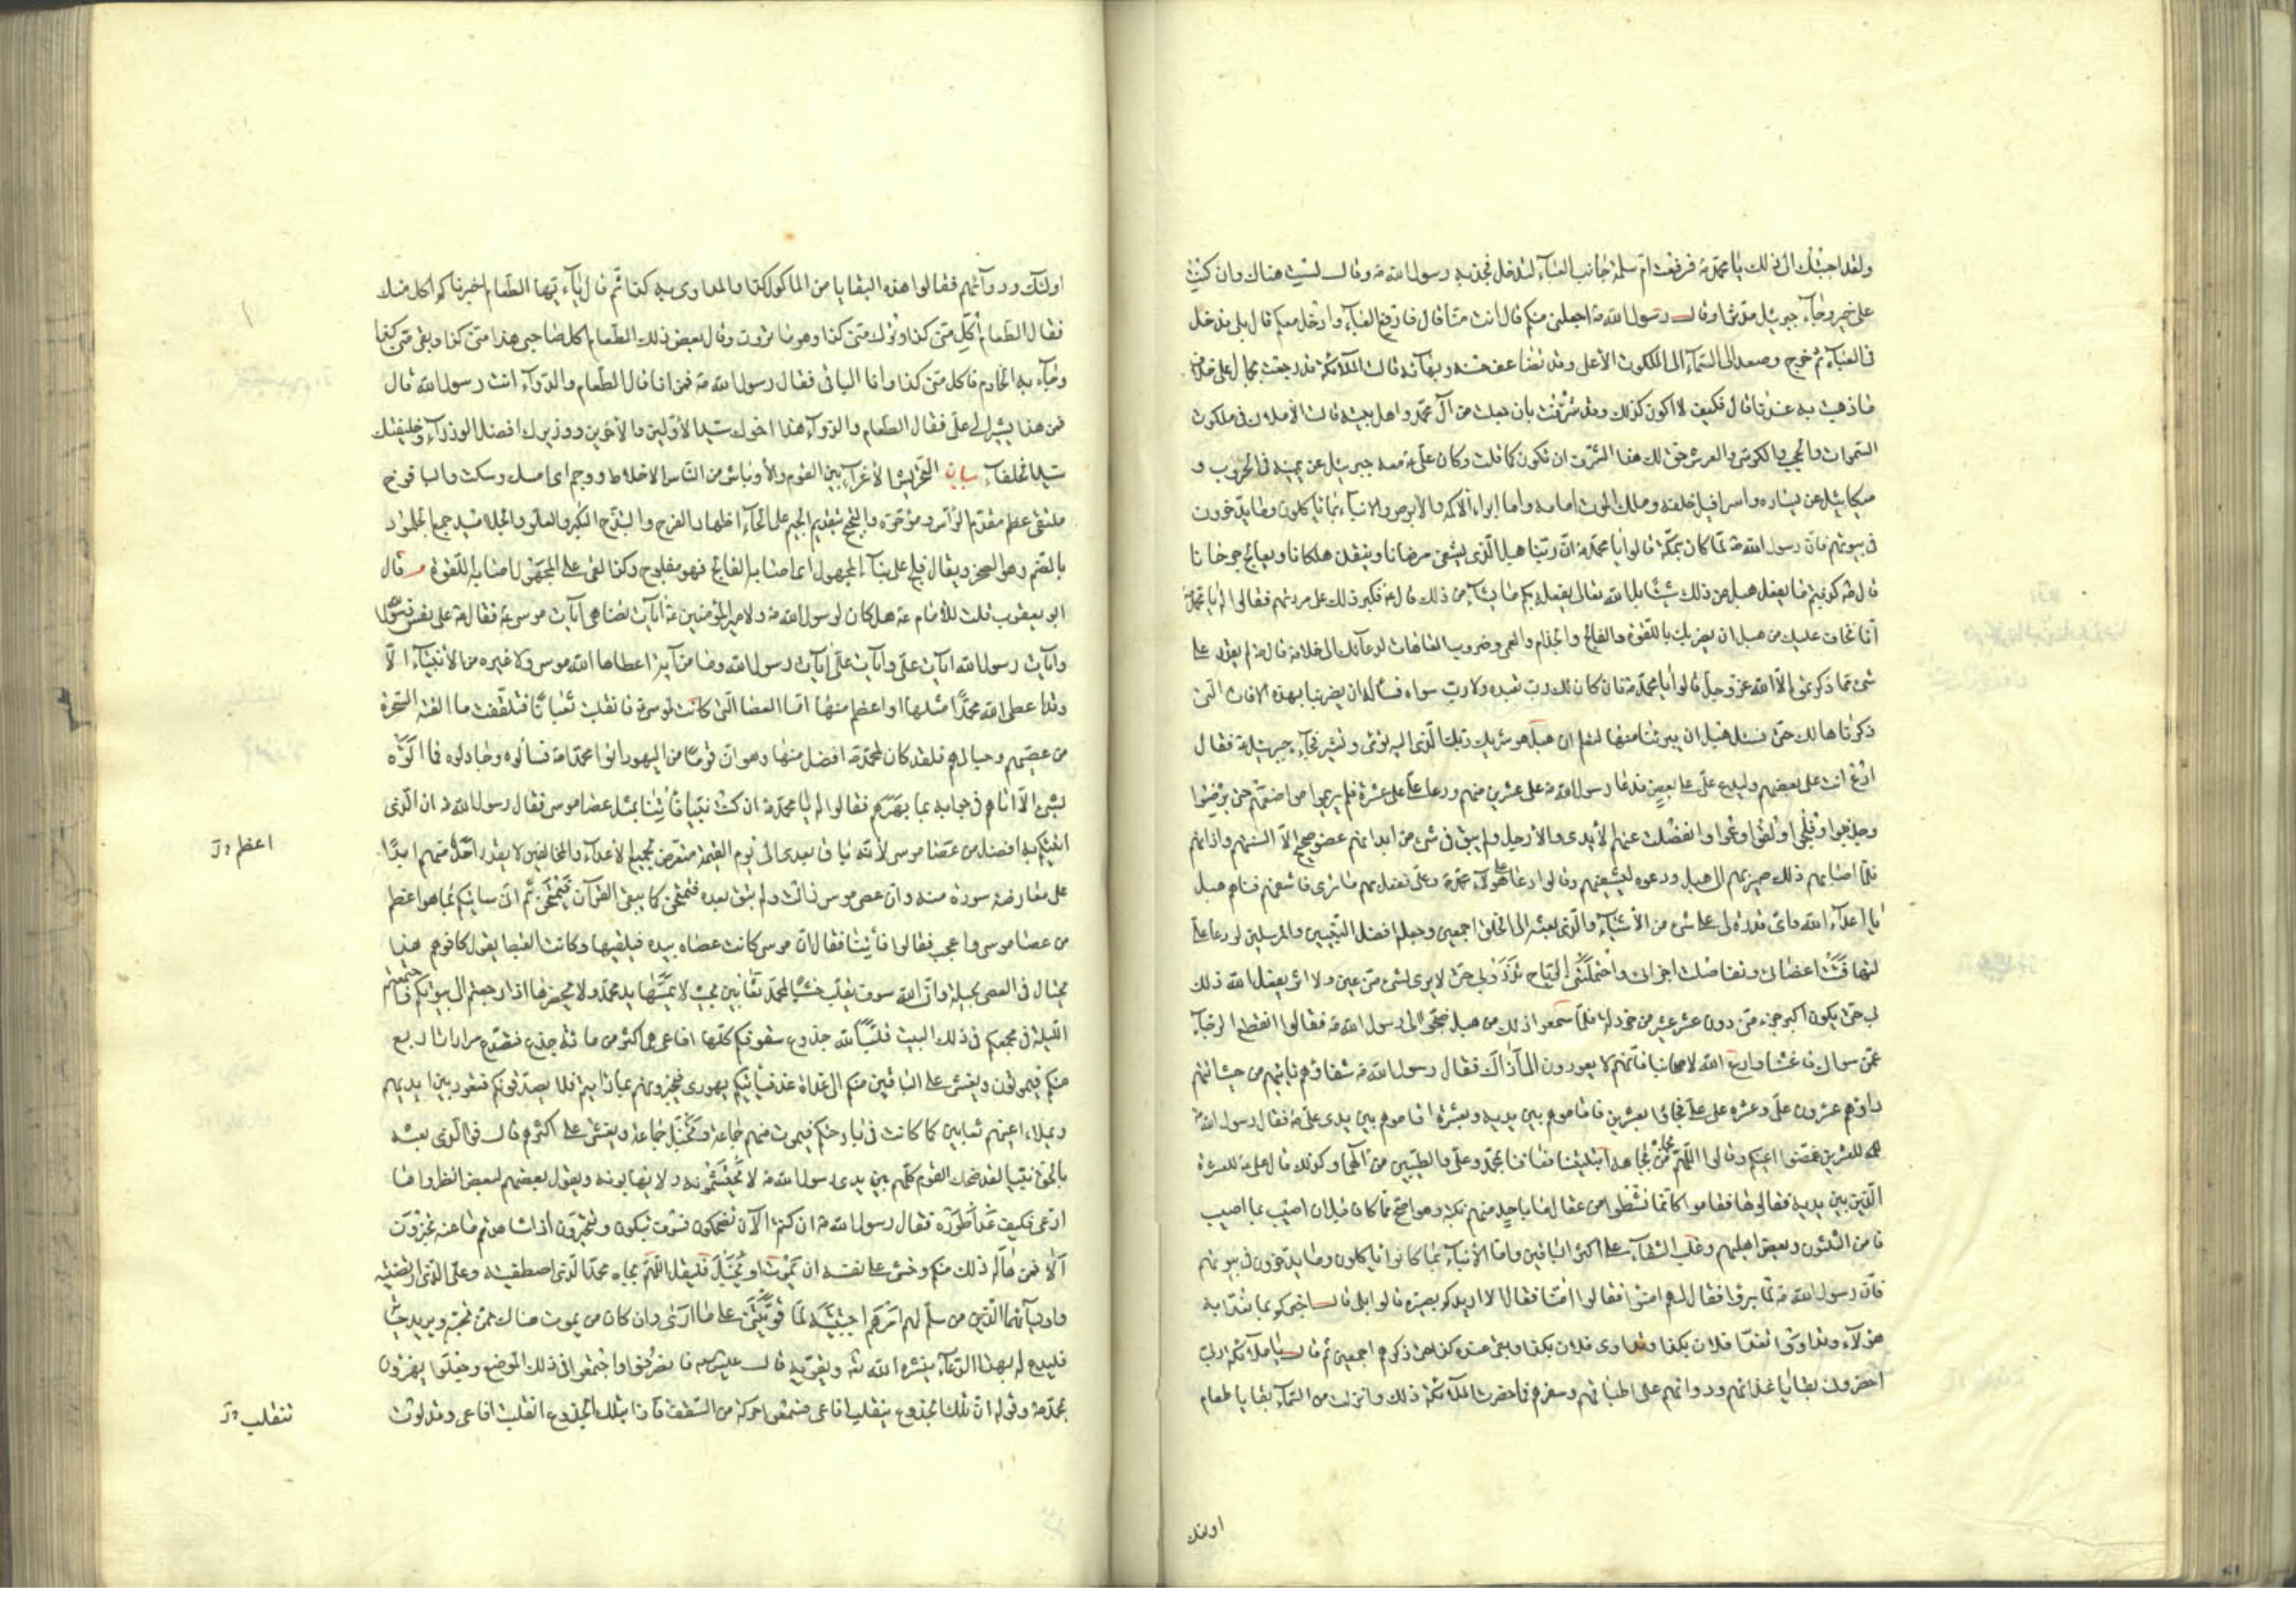 ولقد اجبتك الى ذلك يا محمد ص فرفعت ام سلمة جانب العباء لتدخل فجذبه رسول الله ص وقال لست هناك وان كنت
على خير وجاء جبرئيل مدثرا وقال رسول الله ص اجعلني منكم قال انت منا قال فارفع العباء وادخل معكم قال بلى فدخل
في العباء ثم خرج وصعد الى السماء الى الملكوت الأعلى وقد تضاعف حسنه وبهاؤه قالت الملائكة قد رجعت بجمال على خلاف
ما ذهبت به عندنا قال فكيف لا اكون كذلك وقد شرفت بان جعلت من آل محمد واهل بيته قالت الأملاك في ملكوت
السموات والحجب والكرسي والعرش حق لك هذا الشرف ان تكون كما قلت وكان علي ع معه جبرئيل عن يمينه في الحروب و
ميكائيل عن يساره واسرافيل خلفه وملك الموت امامه واما ابراء الاكمه والابرص والانباء بما يأكلون وما يدخرون
في بيوتهم فان رسول الله ص لما كان بمكة قالوا يا محمد ص ان ربنا هبل الذي يشفي مرضانا وينقذ هلكانا ويعالج جرحانا
قال ص كذبتم ما يفعل هبل من ذلك شيئا بل الله تعالى يفعل بكم ما يشاء من ذلك قال ع فكبر ذلك على مردتهم فقالوا له يا محمد
انا نخاف عليك من هبل ان يضربك باللقوة والفالج والجذام والعمى وضروب العاهات لدعائك الى خلافه قال ص لن يقدر على
شيء مما ذكرتموه الا الله عز وجل قالوا يا محمد ص فان كان لك رب تعبده ولا رب سواه فسأله ان يضربنا بهذه الافات التي
ذكرناها لك حتى نسئل هبل ان يبرئنا منها لتعلم ان هبل هو شريك ربك الذي اليه تومي وتشير فجاءه جبرئيل ع فقال
ادع انت على بعضهم وليدع علي على بعض فدعا رسول الله ص على عشرين منهم ودعا علي على عشرة فلم يريموا مواضعهم حتى برصوا
وجذموا وفلجوا ولقوا وعموا وانفصلت عنهم الأيدي والأرجل ولم يبق في شيء من ابدانهم عضو صحيح الا السنتهم واذانهم
فلما اصابهم ذلك صير بهم الى هبل ودعوه ليشفيهم وقالوا دعا على هؤلاء محمد ص وعلي ففعل بهم ما ترى فاشفهم فناداهم هبل
يا اعداء الله واي قدرة لي على شيء من الأشياء والذي بعثه الى الخلق اجمعين وجعله افضل النبيين والمرسلين لو دعا علي
لتهافتت اعضائي وتفاصلت اجزائي واحتملتني الرياح تذروني حتى لا يرى لشيء مني عين ولا اثر يفعل الله ذلك
بي حتى يكون اكبر جزء مني دون عشر عشير من خردلة فلما سمعوا ذلك من هبل ضجوا الى رسول الله ص فقالوا انقطع الرجاء
عمن سواك فاغثنا وادع الله لاصحابنا فانهم لا يعودون الى اذاك فقال رسول الله ص شفاؤهم يأتيهم من حيث اتاهم
داؤهم عشرون علي وعشرة على علي فجاؤا بعشرين فاقاموهم بين يديه وبعشرة اقاموهم بين يدي علي ع فقال رسول الله ص
للعشرين غضوا اعينكم وقولوا اللهم بجاه من بجاهه ابتليتنا فعافنا بمحمد وعلي والطيبين من آلهما وكذلك قال علي ع للعشرة
الذين بين يديه فقالوها فقاموا كانما نشطوا من عقال ما باحد منهم نكبة وهو اصح مما كان قبل ان اصيب بما اصيب
فامن الثلثون وبعض اهليهم وغلب الشقاء على اكثر الباقين واما الأنباء بما كانوا يأكلون وما يدخرون في بيوتهم
فان رسول الله ص لما برؤا فقال لهم امنوا فقالوا امنا فقال الا ازيدكم بصيرة قالوا بلى قال اخبركم بما تغدا به
هؤلاء وتداووا تغدا فلان بكذا وتداوى فلان بكذا وبقي عنده كذا حتى ذكرهم اجمعين ثم قال يا ملائكة ربي
احضروني بقايا غذائهم ودوائهم على اطباقهم وسفرهم فاحضرت الملائكة ذلك وانزلت من السماء بقايا طعام
اولئك
اولئك ودوائهم فقالوا هذه البقايا من المأكول كذا والمداوى به كذا ثم قال يا ايها الطعام اخبرنا كم اكل منك
فقال الطعام اكل مني كذا وترك مني كذا وهو ما ترون وقال بعض ذلك الطعام اكل صاحبي هذا مني كذا وبقي مني كذا
وجاء به الخادم فاكل مني كذا وانا الباقي فقال رسول الله ص فمن انا قال الطعام والدواء انت رسول الله قال
فمن هذا يشير الى علي فقال الطعام والدواء هذا اخوك سيد الأولين والأخرين ووزيرك افضل الوزراء وخليفتك
سيد الخلفاء بيان التحريش الأغراء بين القوم والأوباش من الناس الاخلاط ووجم اي امسك وسكت واليافوخ
ملتقى عظم مقدم الرأس ومؤخره والبجح بتقديم الجيم على الحاء اظهار الفرح والبذخ الكبر والعلو والجلاميد جمع الجلمود
بالضم وهو الصخر ويقال فلج على بناء المجهول اي اصابه الفالج فهو مفلوج وكذا لقي على المجهول اصابه اللقوة م قال
ابو يعقوب قلت للأمام ع هل كان لرسول الله ص ولامير المؤمنين ع آيات تضاهي آيات موسى ع فقال ع علي نفس رسول الله
وآيات رسول الله آيات علي وآيات علي آيات رسول الله وما من آية اعطاها الله موسى ولا غيره من الأنبياء الا
وقد اعطى الله محمدا مثلها او اعظم منها اما العصا التي كانت لموسى ع فانقلبت ثعبانا فتلقفت ما القته السحرة
من عصيهم وحبالهم فلقد كان لمحمد ص افضل منها وهو ان قوما من اليهود اتوا محمدا ص فسألوه وجادلوه فما اتوه
بشيء الا اتاهم في جوابه بما بهرهم فقالوا له يا محمد ص ان كنت نبيا فأتنا بمثل عصا موسى فقال رسول الله ص ان الذي
اتيتكم به افضل من عصا موسى لأنه باق بعدي الى يوم القيمة متعرض لجميع الأعداء والمخالفين لا يقدر احد منهم ابدا
اعظم
على معارضة سورة منه وان عصا موسى زالت ولم تبق بعده فتمتحن كما يبقى القرآن فيمتحن ثم اني سأتيكم بما هو اعظم
من عصا موسى واعجب فقالوا فأتنا فقال ان موسى كانت عصاه بيده فيلقيها وكانت القبط يقول كافرهم هذا
يحتال في العصا بحيلة وان الله سوف يقلب خشبا لمحمد ثعابين بحيث لا تمسها يد محمد ولا يحضرها اذا رجعتم الى بيوتكم واجتمعتم
الليلة في مجمعكم في ذلك البيت قلب الله جذوع سقوفكم كلها افاعي هي اكثر من مائة جذع فتصدع مرارات اربع
منكم فيموتون ويغشى على الباقين منكم الى غداة غد فيأتيكم يهود فتخبرونهم بما رأيتم فلا يصدقونكم فتعود بين ايديهم
ويملاء اعينهم ثعابين كما كانت في بارحتكم فيموت منهم جماعة وتخبل جماعة ويغشى على اكثرهم قال فو الذي بعثه
بالحق نبيا لقد ضحك القوم كلهم بين يدي رسول الله ص لا يحتشمونه ولا يهابونه ويقول بعضهم لبعض انظروا ما
ادعى وكيف عدا طوره فقال رسول الله ص ان كنتم الآن تضحكون فسوف تبكون وتتحيرون اذا شاهدتم ما عنه تخبرون
الا فمن هاله ذلك منكم وخشي على نفسه ان يموت او يخبل فليقل اللهم بجاه محمد الذي اصطفيته وعلي الذي ارتضيته
واوليائهما الذين من سلم لهم امرهم اجتبيته لما قويتني على ما ارى وان كان من يموت هناك ممن تحبه ويريد حياته
فليدع له بهذا الدعاء ينشره الله تع ويقويه قال ع فانصرفوا واجتمعوا في ذلك الموضع وجعلوا يهزؤن
بمحمد ص وقوله ان تلك الجذوع تنقلب افاعي فسمعوا حركة من السقف فاذا بتلك الجذوع انقلبت افاعي وقد لوت
تنقلب